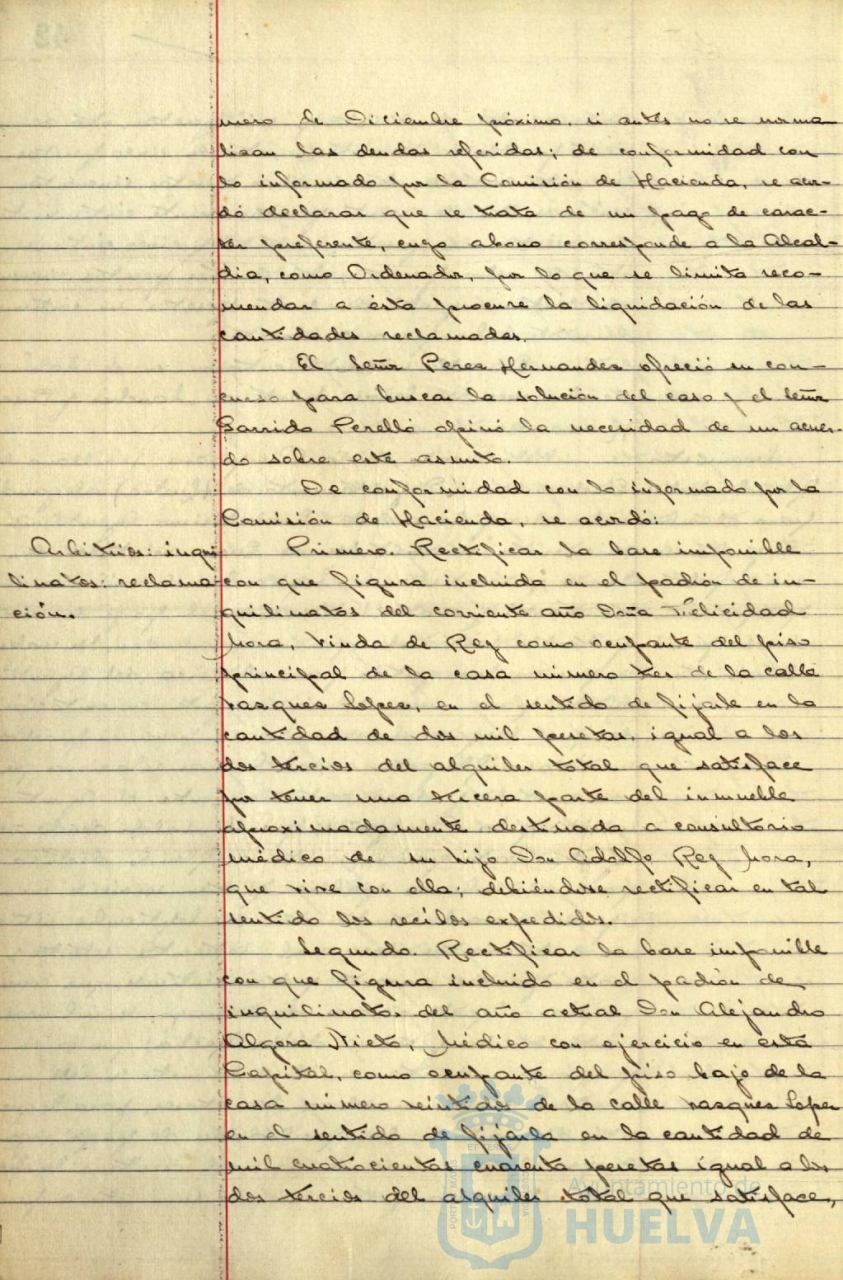 mero de Diciembre próximo, si antes no se norma
lizan las deudas referidas; de conformidad con
lo informado por la Comisión de Hacienda, se acor-
dó declarar que se trata de un pago de carac-
ter preferente, cuyo abono corresponde a la Alcal-
dia, como Ordenador, por lo que se limita reco-
mendar a ésta procure la liquidación de las
cantidades reclamadas.
El Señor Perez Hernandez ofreció su con-
curso para buscar la solución del caso y el Señor
Garrido Perelló opinó la necesidad de un acuer-
do sobre este asunto.
De conformidad con lo informado por la
Comisión de Hacienda, se acordó:
Arbitrios: inqui
linatos: reclama-
ción.
Primero. Rectificar la base imponible
con que figura incluida en el padrón de in-
quilinatos del corriente año Doña Felicidad
Mora, Viuda de Rey como ocupante del piso
principal de la casa número tres de la calle
Vasques Lopez, en el sentido de fijarle en la
cantidad de dos mil pesetas, igual a los
dos tercios del alquiler total que satisface
por tener una tercera parte del inmueble
aproximadamente destinada a consultorio
médico de su hijo Don Adolfo Rey Mora,
que vive con ella; debiéndose rectificar en tal
sentido los recibos expedidos.
Segundo. Rectificar la base imponible
con que figura incluido en el padrón de
inquilinatos del año actual Don Alejandro
Algora Nieto, Médico con ejercicio en esta
Capital, como ocupante del piso bajo de la
casa número veintidos de la calle Vasques Lopez
en el sentido de fijarla en la cantidad de
mil cuatrocientas cuarenta pesetas igual a los
dos tercios del alquiler total que satisface,
Ayuntamiento de
HUELVA